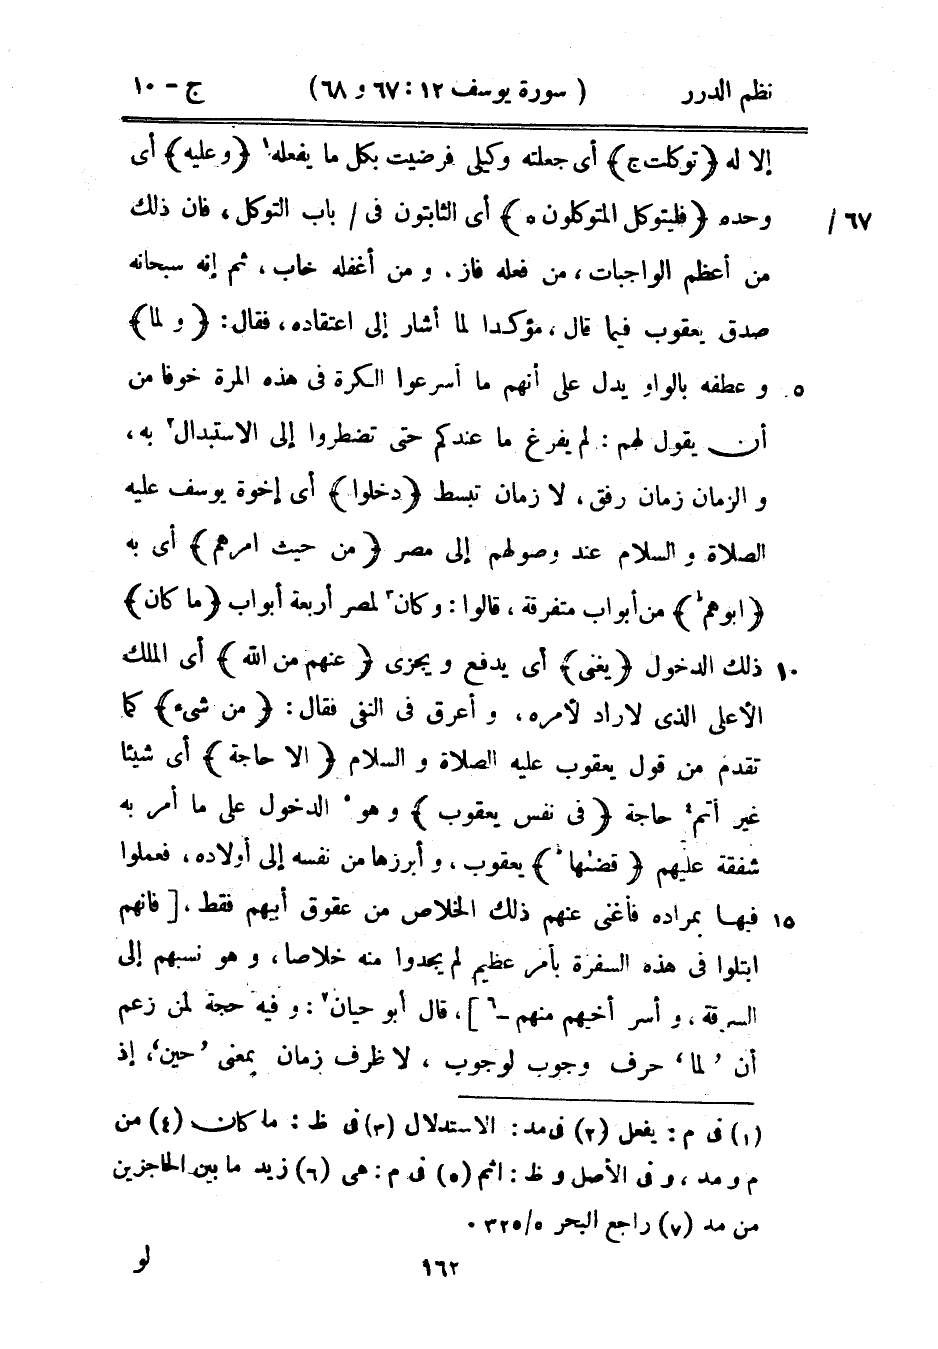 نظم الدرر ( سورة يوسف ١٢ : ٦٧ و ٦٨ ) ج - ١٠
إلا له ﴿ توكلت ج ﴾ أى جعلته وكيلى فرضيت بكل ما يفعله١ ﴿ و عليه ﴾ أى
٦٧ / وحده ﴿ فليتوكل المتوكلون ه ﴾ أى الثابتون فى / باب التوكل ، فان ذلك
من أعظم الواجبات ، من فعله فاز . و من أغفله خاب ، ثم إنه سبحانه
صدق يعقوب فيما قال ، مؤكدا لما أشار إلى اعتقاده ، فقال : ﴿ و لما ﴾
٥ و عطفه بالواو يدل على أنهم ما أسرعوا الكرة فى هذه المرة خوفا من
أن يقول لهم : لم يفرغ ما عندكم حتى تضطروا إلى الاستبدال٢ به ،
و الزمان زمان رفق ، لا زمان تبسط ﴿ دخلوا ﴾ أى إخوة يوسف عليه
الصلاة و السلام عند وصولهم إلى مصر ﴿ من حيث امرهم ﴾ أى به
﴿ ابوهم ط ﴾ من أبواب متفرقة ، قالوا : و كان٣ لمصر أربعة أبواب ﴿ ما كان ﴾
١٠ ذلك الدخول ﴿ يغنى ﴾ أى يدفع و يجزى ﴿ عنهم من الله ﴾ أى الملك
الأعلى الذى لاراد لأمره ، و أعرق فى النفى فقال : ﴿ من شىء ﴾ كما
تقدم من قول يعقوب عليه الصلاة و السلام ﴿ الا حاجة ﴾ أى شيئا
غير أتم٤ حاجة ﴿ فى نفس يعقوب ﴾ و هو٥ الدخول على ما أمر به
شفقة عليهم ﴿ قضٰها ط ﴾ يعقوب ، و أبرزها من نفسه إلى أولاده ، فعملوا
١٥ فيها بمراده فأغنى عنهم ذلك الخلاص من عقوق أبيهم فقط ، [ فانهم
ابتلوا فى هذه السفرة بأمر عظيم لم يجدوا منه خلاصا ، و هو نسبهم إلى
السرقة ، و أسر أخيهم منهم -٦ ] ، قال أبو حيان٧ : و فيه حجة لمن زعم
أن ’ لما ‘ حرف وجوب لوجوب ، لا ظرف زمان بمعنى ’ حين ‘ ، إذ
(١) فى م : يفعل (٢) فى مد : الاستدلال (٣) فى ظ : ما كان (٤) من
م و مد ، و فى الأصل و ظ : اثم (٥) فى م : هى (٦) زيد ما بين الحاجزين
من مد (٧) راجع البحر ٥/ ٣٢٥ .
١٦٢ لو